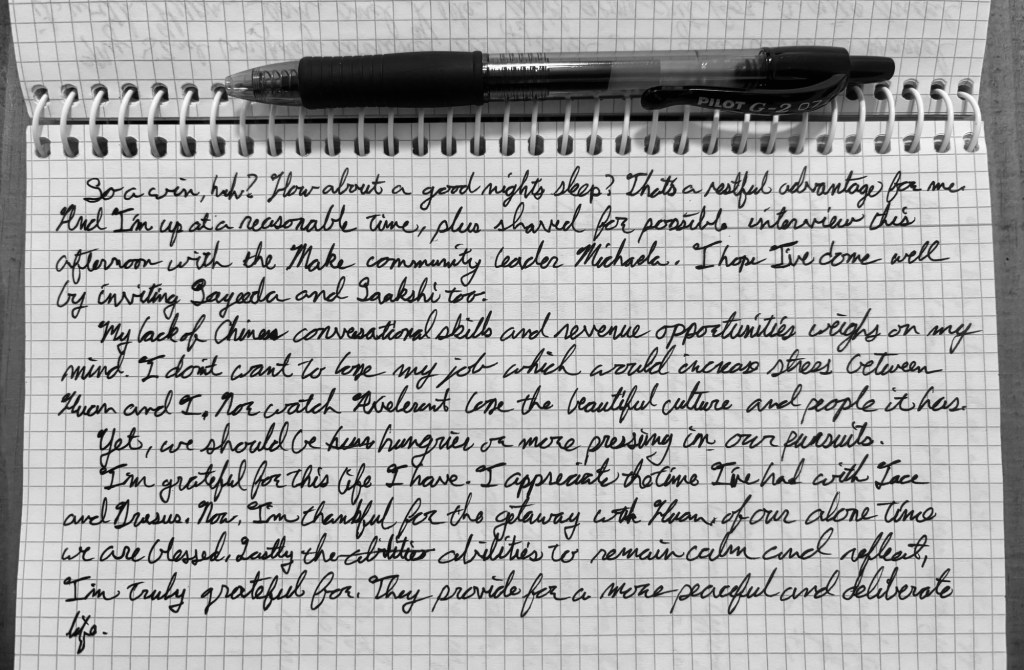 PILOT G-2 07
So a win, huh? How about a good nights sleep? Thats a restful advantage for me.
And I'm up at a reasonable time, plus shaved for possible interview this
afternoon with the Make community leader Michaela. I hope I've done well
by inviting Sayeeda and Saakshi too.
My lack of Chinese conversational skills and revenue opportunities weighs on my
mind. I don't want to lose my job which would increase stress between
Huan and I. Nor watch Axelerant lose the beautiful culture and people it has.
Yet, we should be hungrier or more pressing in our pursuits.
I'm grateful for this life I have. I appreciate the time I've had with Jace
and Drasus. Now, I'm thankful for the getaway with Huan, of our alone time
we are blessed. Lastly the abilities abilities to remain calm and reflect,
I'm truly grateful for. They provide for a more peaceful and deliberate
life.